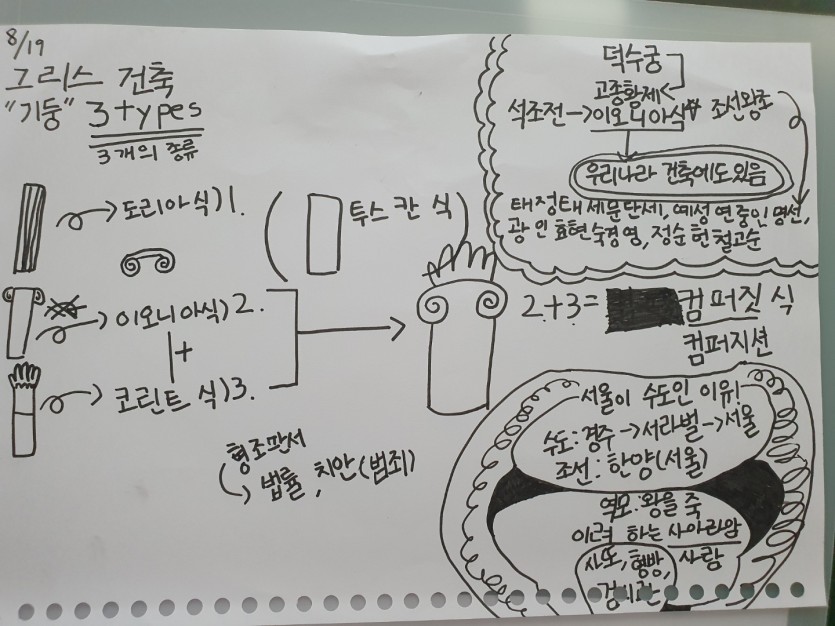 8/19
그리스 건축
"기둥" 3 types
3개의 종류
도리아식)1.
(투스칸 식)
이오니아식)2.
+
코린트 식)3.
형조판서
법률, 치안(범죄)
덕수궁
고종황제
석조전→이오니아식 조선왕조
우리나라 건축에도 있음
태정태세문단세, 예성연중인명선,
광인효현숙경영, 정순헌철고순
2+3= 컴퍼짓 식
컴퍼지션
서울이 수도인 이유!
수도: 경주→서라벌→서울
조선: 한양(서울)
역모: 왕을 죽
이려 하는 사아라암
사또, 형방, 사람